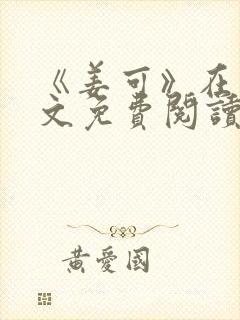 《姜可》在
文免費閱讀
黃愛國